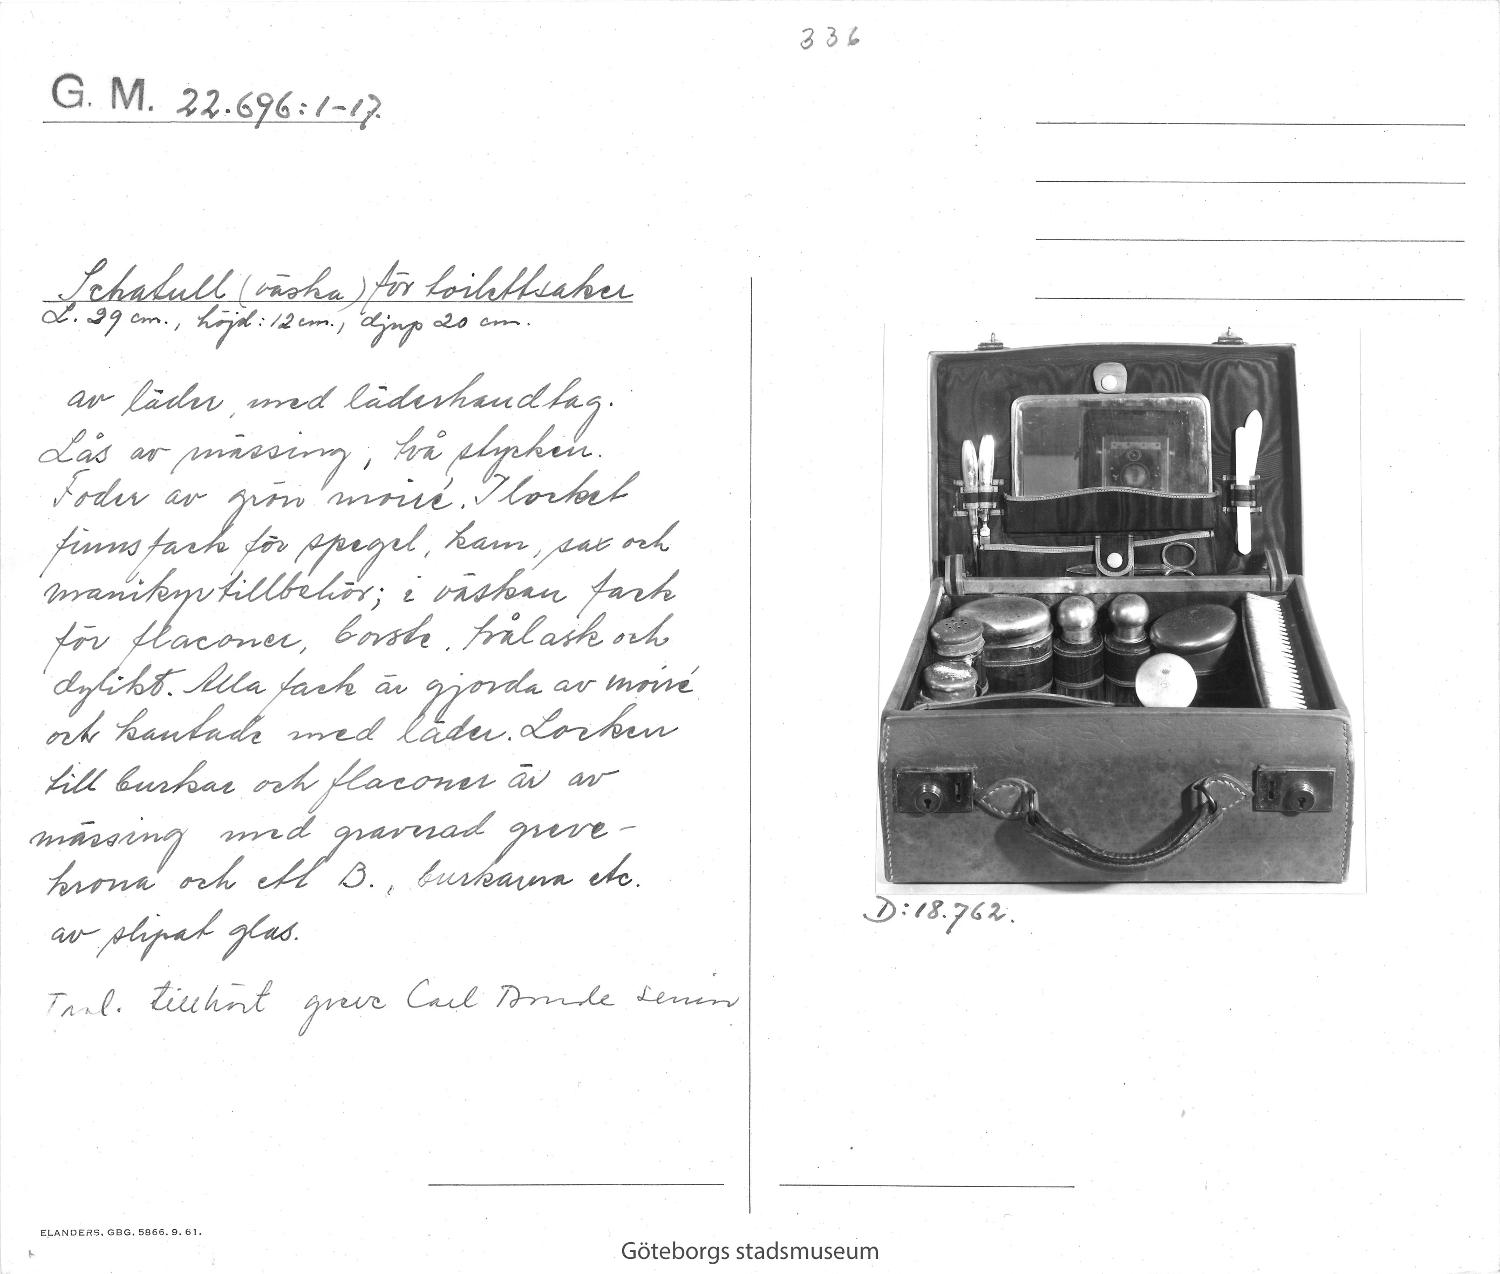 336
G. M. 22.696:1-17.
Schatull (väska) för toilettsaker
L. 29 cm., höjd: 12 cm., djup 20 cm.
av läder, med läderhandtag.
Lås av mässing, två stycken.
Foder av grön moiré. I locket
finns fack för spegel, kam, sax och
manikyrtillbehör; i väskan fack
för flaconer, borste, tvålask och
dylikt. Alla fack är gjorda av moiré
och kantade med läder. Locken
till burkar och flaconer är av
mässing med graverad greve-
krona och ett B., burkarna etc.
av slipat glas.
tillhört greve Carl Bonde senior
D:18.762.
ELANDERS, GBG. 5866. 9. 61.
Göteborgs stadsmuseum